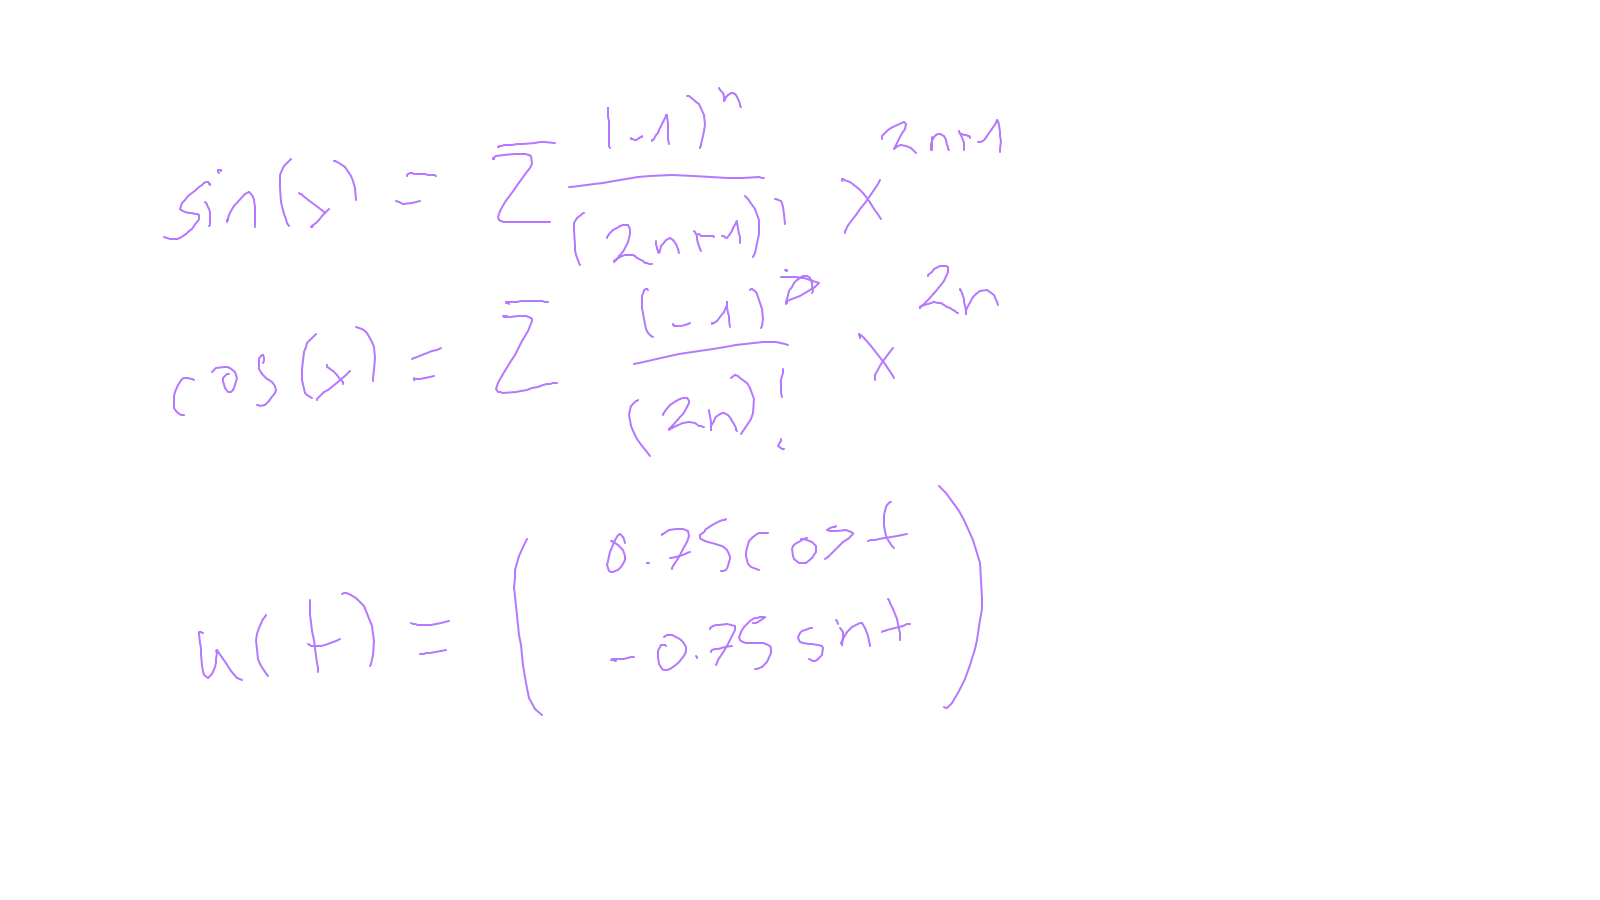 sin(x) = Σ (-1)^n / (2n+1)! x^(2n+1)
cos(x) = Σ (-1)^n / (2n)! x^(2n)
u(t) = ( 0.75 cos t
-0.75 sin t )